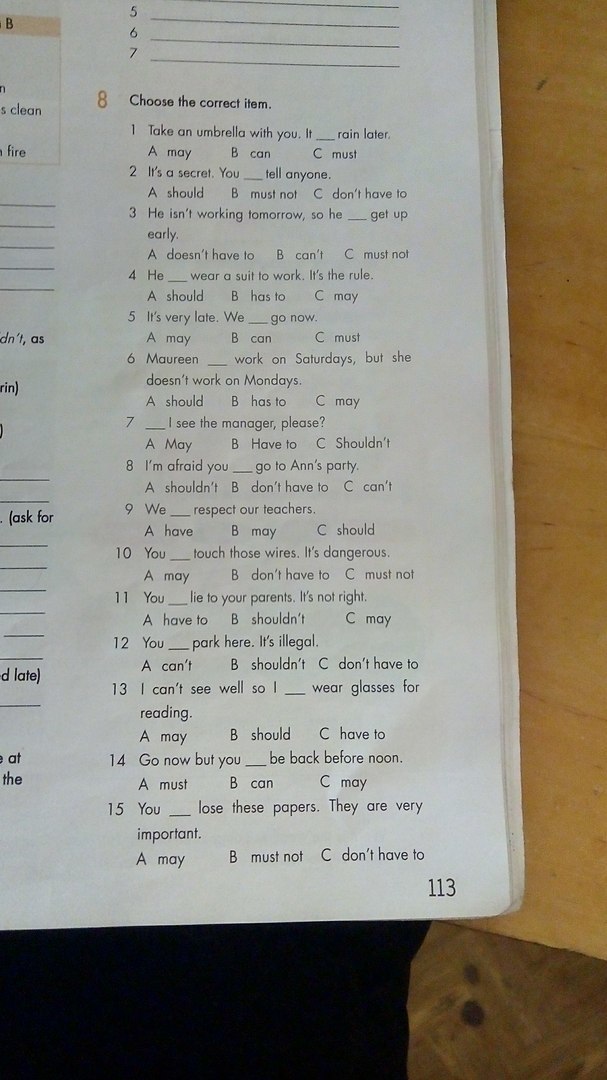 B
s clean
fire
dn't, as
rin)
)
. (ask for
d late)
e at
the
5 ____
6 ____
7 ____
8 Choose the correct item.
1 Take an umbrella with you. It ___ rain later.
A may B can C must
2 It's a secret. You ___ tell anyone.
A should B must not C don't have to
3 He isn't working tomorrow, so he ___ get up
early.
A doesn't have to B can't C must not
4 He ___ wear a suit to work. It's the rule.
A should B has to C may
5 It's very late. We ___ go now.
A may B can C must
6 Maureen ___ work on Saturdays, but she
doesn't work on Mondays.
A should B has to C may
7 ___ I see the manager, please?
A May B Have to C Shouldn't
8 I'm afraid you ___ go to Ann's party.
A shouldn't B don't have to C can't
9 We ___ respect our teachers.
A have B may C should
10 You ___ touch those wires. It's dangerous.
A may B don't have to C must not
11 You ___ lie to your parents. It's not right.
A have to B shouldn't C may
12 You ___ park here. It's illegal.
A can't B shouldn't C don't have to
13 I can't see well so I ___ wear glasses for
reading.
A may B should C have to
14 Go now but you ___ be back before noon.
A must B can C may
15 You ___ lose these papers. They are very
important.
A may B must not C don't have to
113